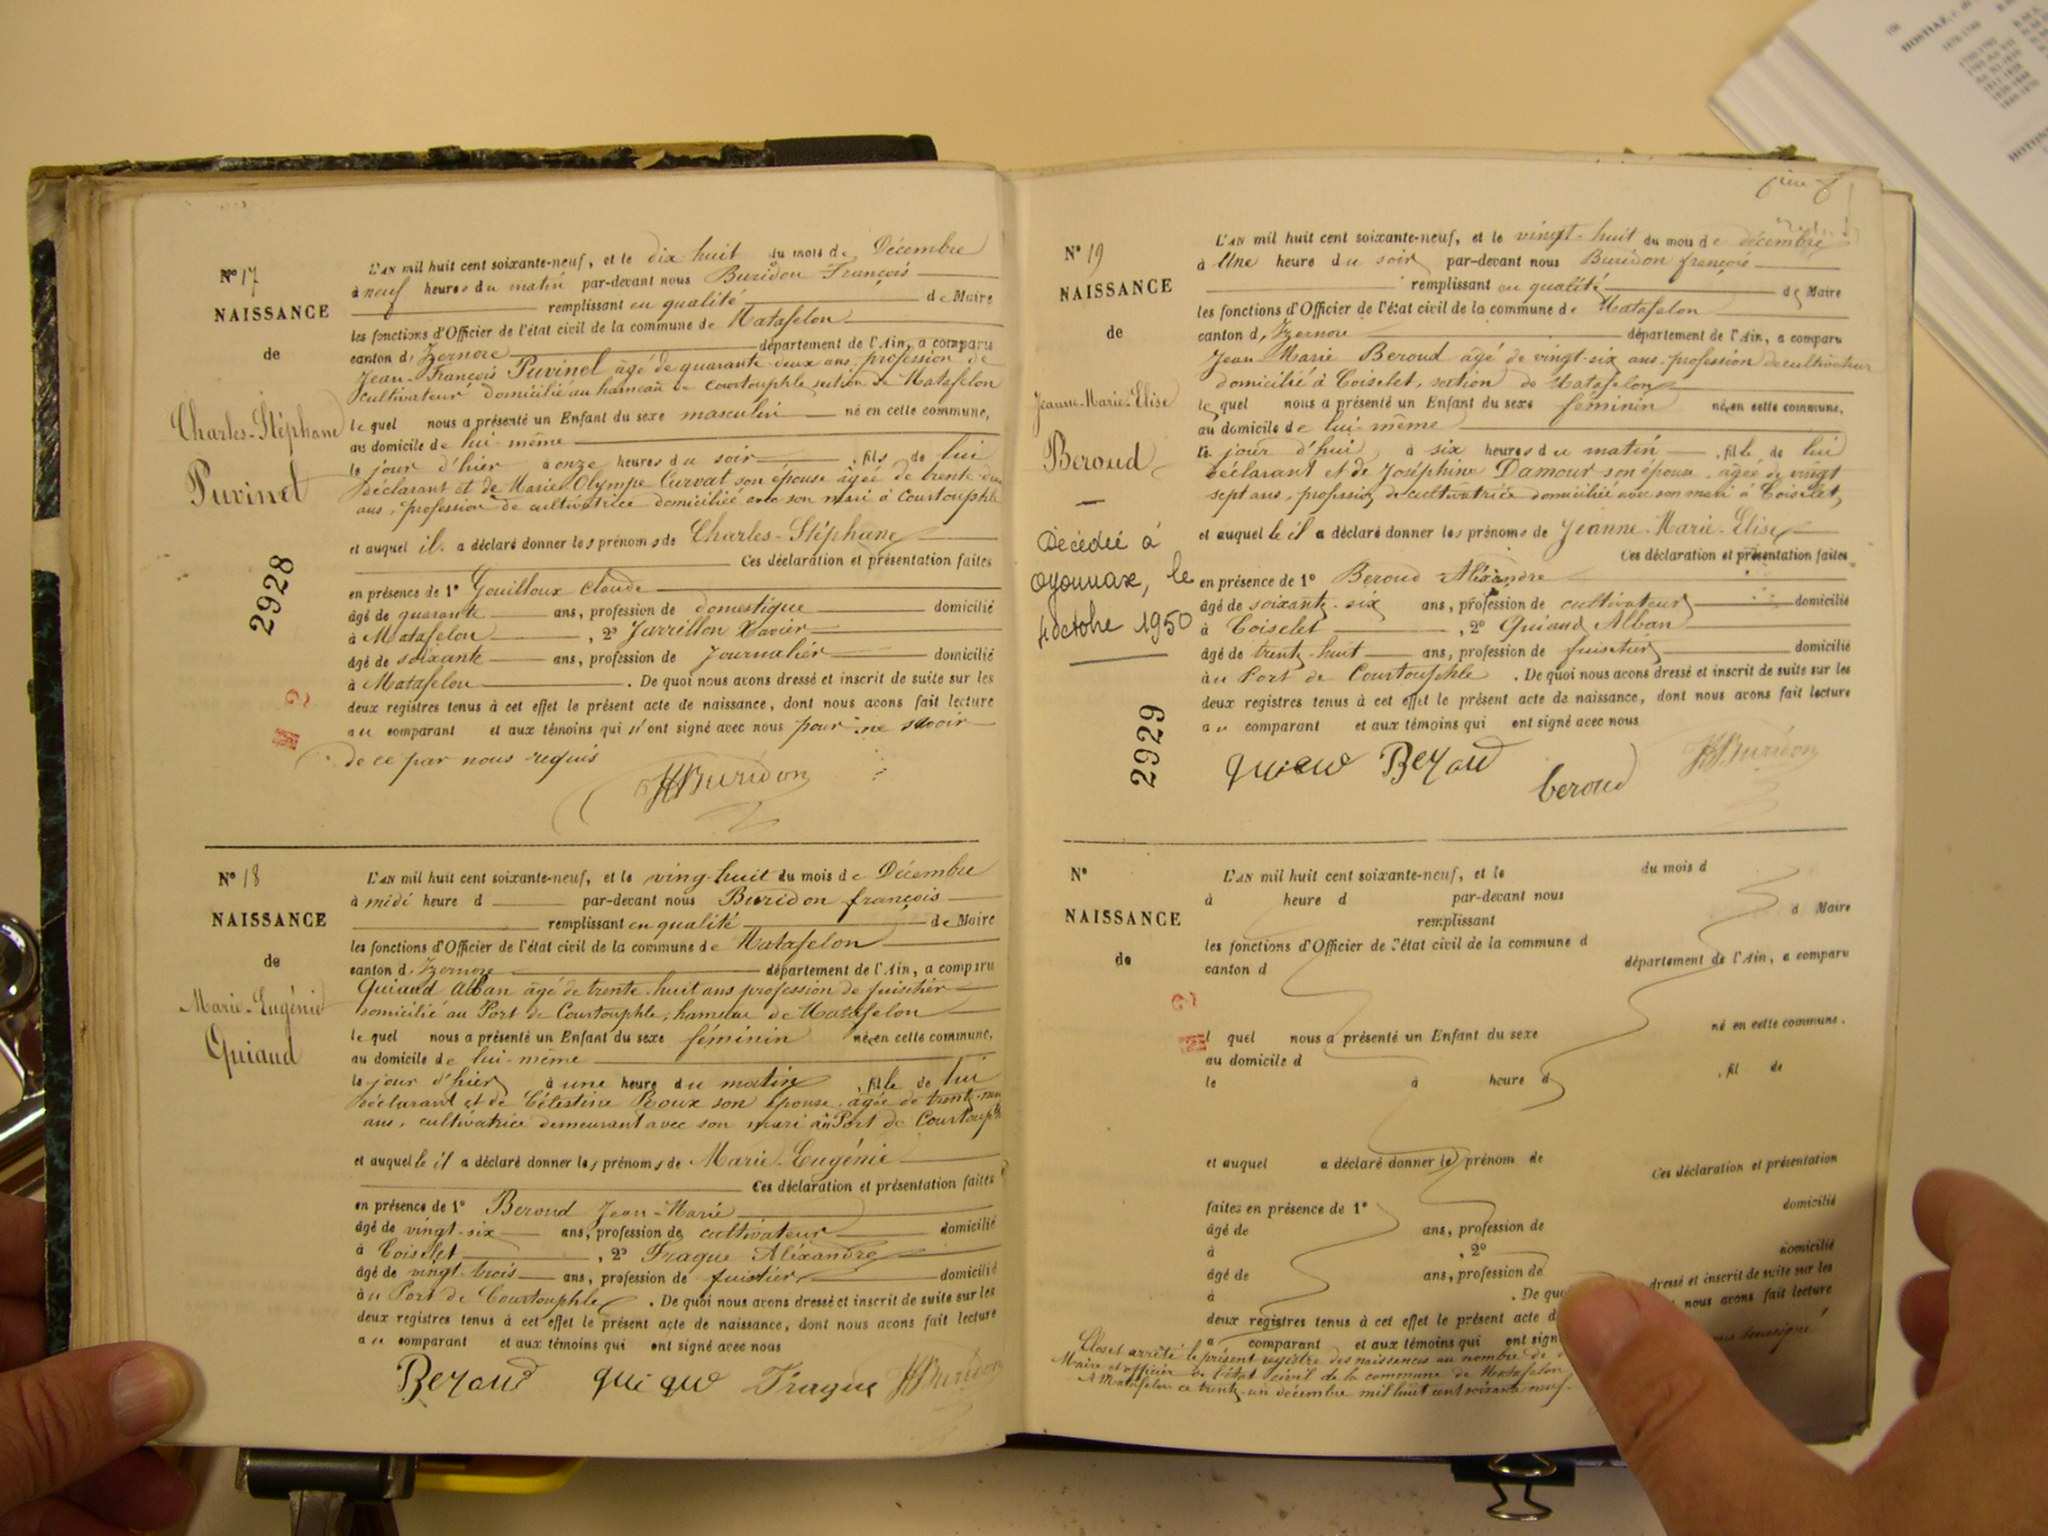 N° 17
NAISSANCE
de
Charles-Stéphane
Puvinel
2928
L'AN mil huit cent soixante-neuf, et le dix huit du mois de Décembre
à neuf heures du matin par-devant nous Buridon François
remplissant en qualité de Maire
les fonctions d'Officier de l'état civil de la commune de Matafelon
canton d'Izernore département de l'Ain, a comparu
Jean-François Puvinel âgé de quarante deux ans, profession de
cultivateur domicilié au hameau de Courtouphle section de Matafelon
lequel nous a présenté un Enfant du sexe masculin né en cette commune,
au domicile de lui-même
le jour d'hier à onze heures du soir, fils de lui
déclarant et de Marie Olympe Curvat son épouse âgée de trente deux
ans, profession de cultivatrice domiciliée avec son mari à Courtouphle
et auquel il a déclaré donner les prénoms de Charles-Stéphane
Ces déclaration et présentation faites
en présence de 1° Gouilloux Claude
âgé de quarante ans, profession de domestique domicilié
à Matafelon, 2° Jarrillon Xavier
âgé de soixante ans, profession de Journalier domicilié
à Matafelon. De quoi nous avons dressé et inscrit de suite sur les
deux registres tenus à cet effet le présent acte de naissance, dont nous avons fait lecture
au comparant et aux témoins qui n'ont signé avec nous pour ne savoir
de ce par nous requis
Buridon
N° 18
NAISSANCE
de
Marie-Eugénie
Quiaud
L'AN mil huit cent soixante-neuf, et le ving-huit du mois de Décembre
à midi heure d par-devant nous Buridon françois
remplissant en qualité de Maire
les fonctions d'Officier de l'état civil de la commune de Matafelon
canton d'Izernore département de l'Ain, a comparu
Quiaud Alban âgé de trente-huit ans profession de fuistier
domicilié au Port de Courtouphle, hameau de Matafelon
lequel nous a présenté un Enfant du sexe féminin née en cette commune,
au domicile de lui-même
le jour d'hier à une heure du matin, fille de lui
déclarant et de Célestine Roux son épouse, âgée de trente-
ans, cultivatrice demeurant avec son mari au Port de Courtouphle
et auquel le il a déclaré donner les prénoms de Marie-Eugénie
Ces déclaration et présentation faites
en présence de 1° Beroud Jean-Marie
âgé de vingt-six ans, profession de cultivateur domicilié
à Coiselet, 2° Frague Aléxandre
âgé de vingt-trois ans, profession de fuistier domicilié
au Port de Courtouphle. De quoi nous avons dressé et inscrit de suite sur les
deux registres tenus à cet effet le présent acte de naissance, dont nous avons fait lecture
au comparant et aux témoins qui ont signé avec nous
Beroud quiaud Frague Buridon
N° 19
NAISSANCE
de
Jeanne-Marie-Elise
Beroud
Décédée à
Oyonnax, le
4 octobre 1950
2929
L'AN mil huit cent soixante-neuf, et le vingt-huit du mois de décembre
à Une heure du soir par-devant nous Buridon françois
remplissant en qualité de Maire
les fonctions d'Officier de l'état civil de la commune de Matafelon
canton d'Izernore département de l'Ain, a comparu
Jean-Marie Beroud âgé de vingt-six ans, profession de cultivateur
domicilié à Coiselet, section de Matafelon
lequel nous a présenté un Enfant du sexe féminin née en cette commune,
au domicile de lui-même
le jour d'hui à six heures du matin, fille de lui
déclarant et de Joséphine Damour son épouse, âgée de vingt
sept ans, profession de cultivatrice domiciliée avec son mari à Coiselet
et auquel le il a déclaré donner les prénoms de Jeanne-Marie-Elise
Ces déclaration et présentation faites
en présence de 1° Beroud Aléxandre
âgé de soixante-six ans, profession de cultivateur domicilié
à Coiselet, 2° Quiaud Alban
âgé de trente-huit ans, profession de fuistier domicilié
au Port de Courtouphle. De quoi nous avons dressé et inscrit de suite sur les
deux registres tenus à cet effet le présent acte de naissance, dont nous avons fait lecture
au comparant et aux témoins qui ont signé avec nous
quiaud Beroud beroud Buridon
N°
NAISSANCE
de
L'AN mil huit cent soixante-neuf, et le du mois d
à heure d par-devant nous
remplissant d Maire
les fonctions d'Officier de l'état civil de la commune d
canton d département de l'Ain, a comparu
l quel nous a présenté un Enfant du sexe né en cette commune,
au domicile d
le à heure d, fil de
et auquel a déclaré donner le prénom de
Ces déclaration et présentation
faites en présence de 1° domicilié
âgé de ans, profession de
à, 2° domicilié
âgé de ans, profession de
à. De quoi dressé et inscrit de suite sur les
deux registres tenus à cet effet le présent acte d nous avons fait lecture
a comparant et aux témoins qui ont sign
Clos et arrêté le présent registre des naissances au nombre de
Maire et officier de l'état civil de la commune de Matafelon
A Matafelon ce trente-un décembre mil huit cent soixante neuf.
HOSTIAZ